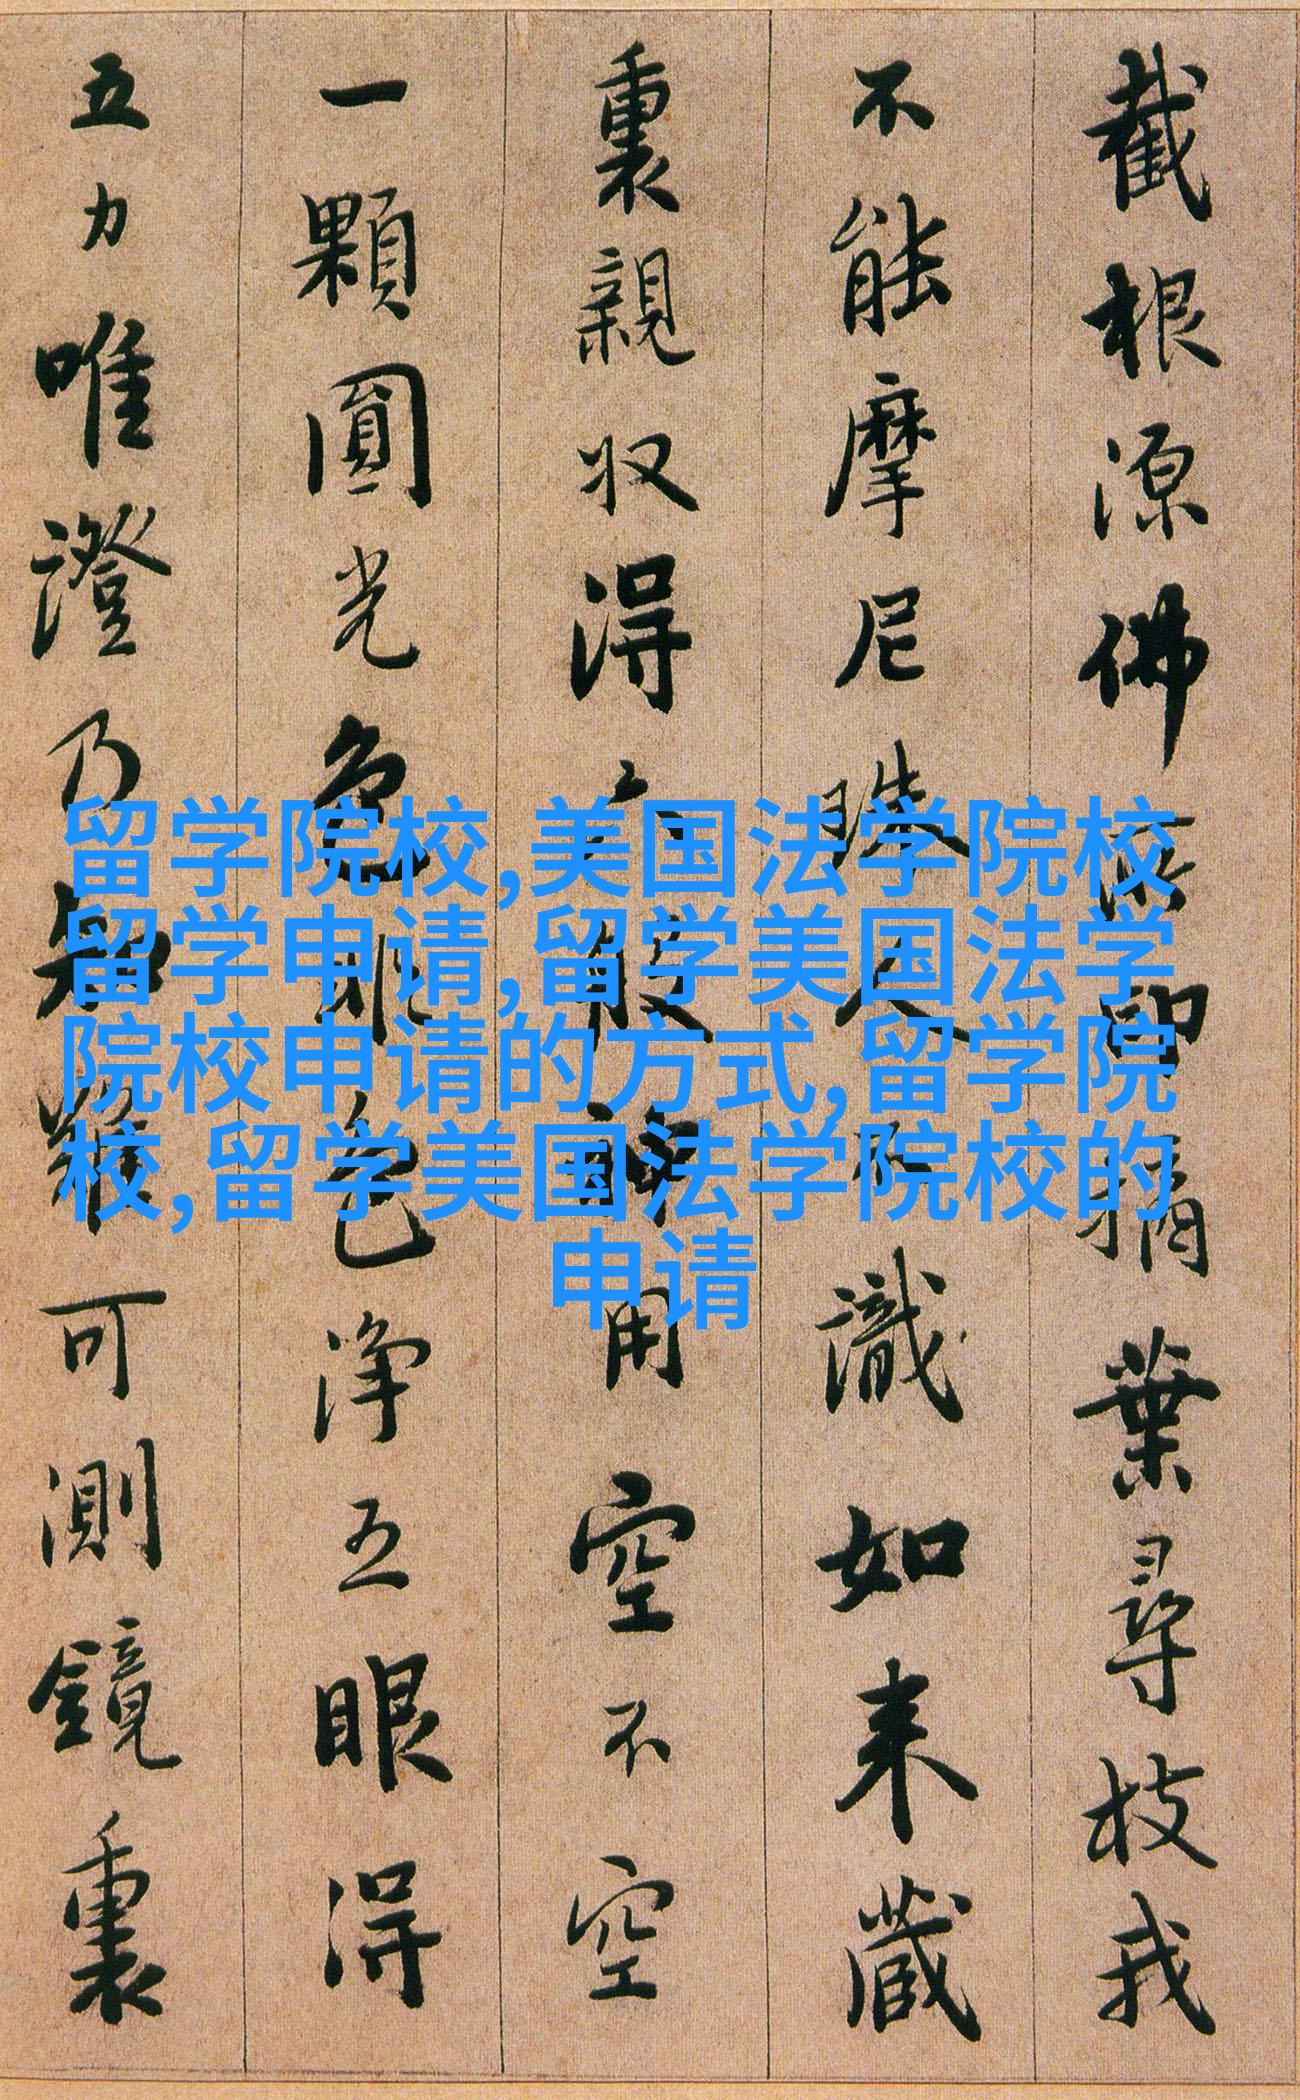 截根源佛所印摘葉尋枝我
不能摩尼珠人不識如来藏
裏親収得六般神用空不空
一顆圓光色非色淨五眼得
五力唯證乃知難可測鏡裏
留学院校,美国法学院校
留学申请,留学美国法学
院校申请的方式,留学院
校,留学美国法学院校的
申请